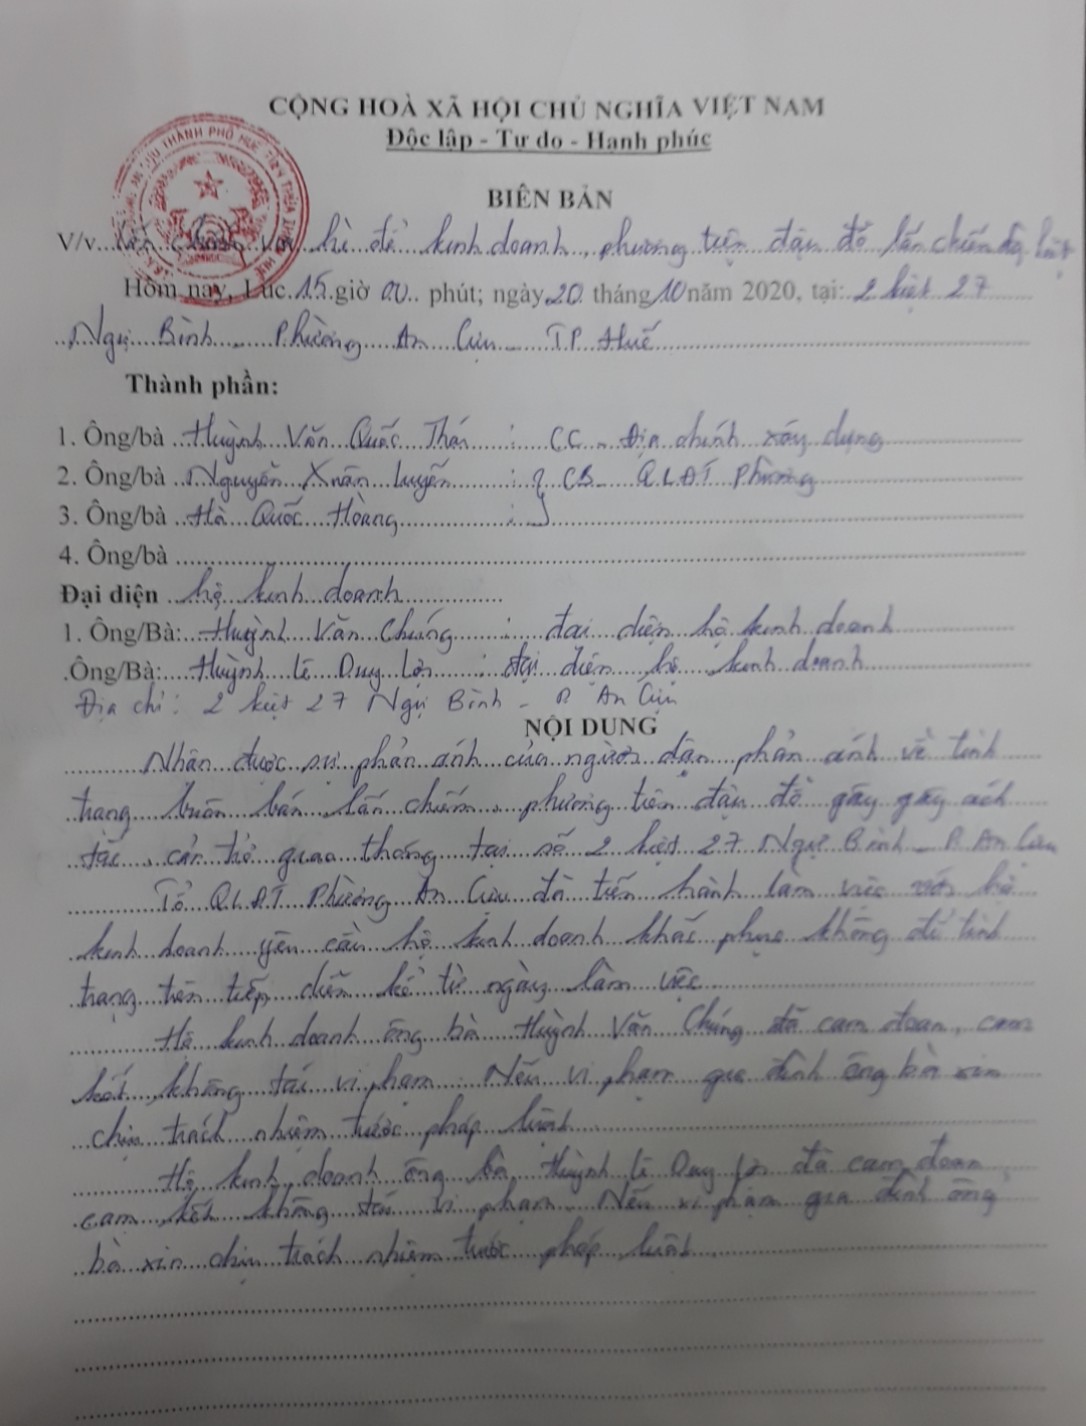 CỘNG HOÀ XÃ HỘI CHỦ NGHĨA VIỆT NAM
Độc lập - Tự do - Hạnh phúc
BIÊN BẢN
V/v lấn chiếm vỉa hè để kinh doanh, phương tiện đậu đỗ lấn chiếm
Hôm nay, Lúc 15 giờ 00 phút; ngày 20 tháng 10 năm 2020, tại: 2 kiệt 27
Ngự Bình - Phường An Cựu - TP Huế
Thành phần:
1. Ông/bà Huỳnh Văn Quốc Thái : CC - Địa chính xây dựng
2. Ông/bà Nguyễn Xuân Luyến : CB QLĐT Phường
3. Ông/bà Hà Quốc Hoàng :
4. Ông/bà
Đại diện hộ kinh doanh
1. Ông/Bà: Huỳnh Văn Chúng : đại diện hộ kinh doanh
.Ông/Bà: Huỳnh Lê Duy Lợi : đại diện hộ kinh doanh
Địa chỉ: 2 kiệt 27 Ngự Bình - P An Cựu
NỘI DUNG
Nhận được sự phản ánh của người dân phản ánh về tình
trạng buôn bán lấn chiếm, phương tiện đậu đỗ gây gây ách
tắc, cản trở giao thông tại số 2 kiệt 27 Ngự Bình - P. An Cựu
Tổ QLĐT Phường An Cựu đã tiến hành làm việc với hộ
kinh doanh yêu cầu hộ kinh doanh khắc phục không để tình
trạng trên tiếp diễn kể từ ngày làm việc
Hộ kinh doanh ông bà Huỳnh Văn Chúng đã cam đoan, cam
kết không tái vi phạm. Nếu vi phạm gia đình ông bà xin
chịu trách nhiệm trước pháp luật
Hộ kinh doanh ông bà Huỳnh Lê Duy Lợi đã cam đoan
cam kết không tái vi phạm. Nếu vi phạm gia đình ông
bà xin chịu trách nhiệm trước pháp luật.